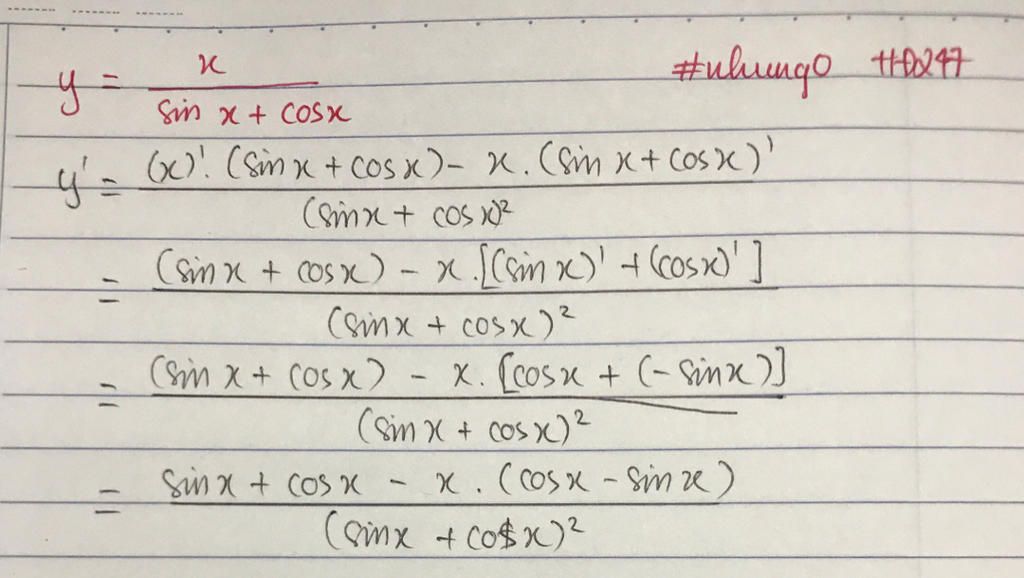 y = x / (sin x + cosx) #nhung0 HĐ247
y' = (x)'. (sin x + cos x) - x. (sin x + cos x)' / (sinx + cos x)²
= (sin x + cosx) - x.[(sin x)' + (cosx)'] / (sinx + cosx)²
= (sin x + cosx) - x. [cosx + (-sinx)] / (sin x + cosx)²
= sinx + cosx - x. (cosx - sinx) / (sinx + cosx)²